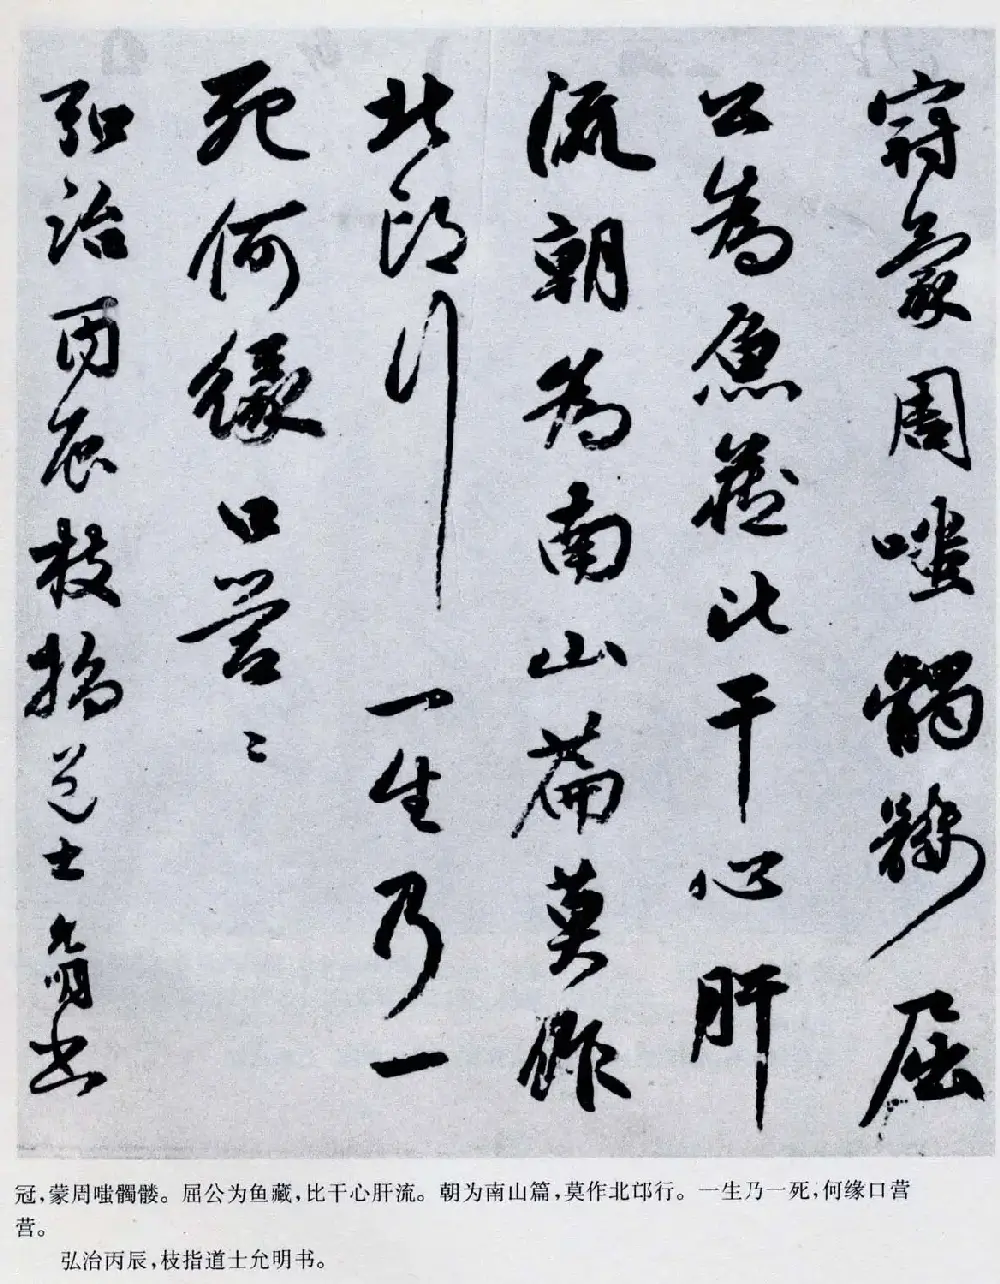 冠蒙周嗤髑髏屈
公為魚藏比干心肝
流朝為南山篇莫作
北邙行一生乃一
死何緣口營〻
弘治丙辰枝指道士允明書
冠,蒙周嗤髑髅。屈公为鱼藏,比干心肝流。朝为南山篇,莫作北邙行。一生乃一死,何缘口营
营。
弘治丙辰,枝指道士允明书。